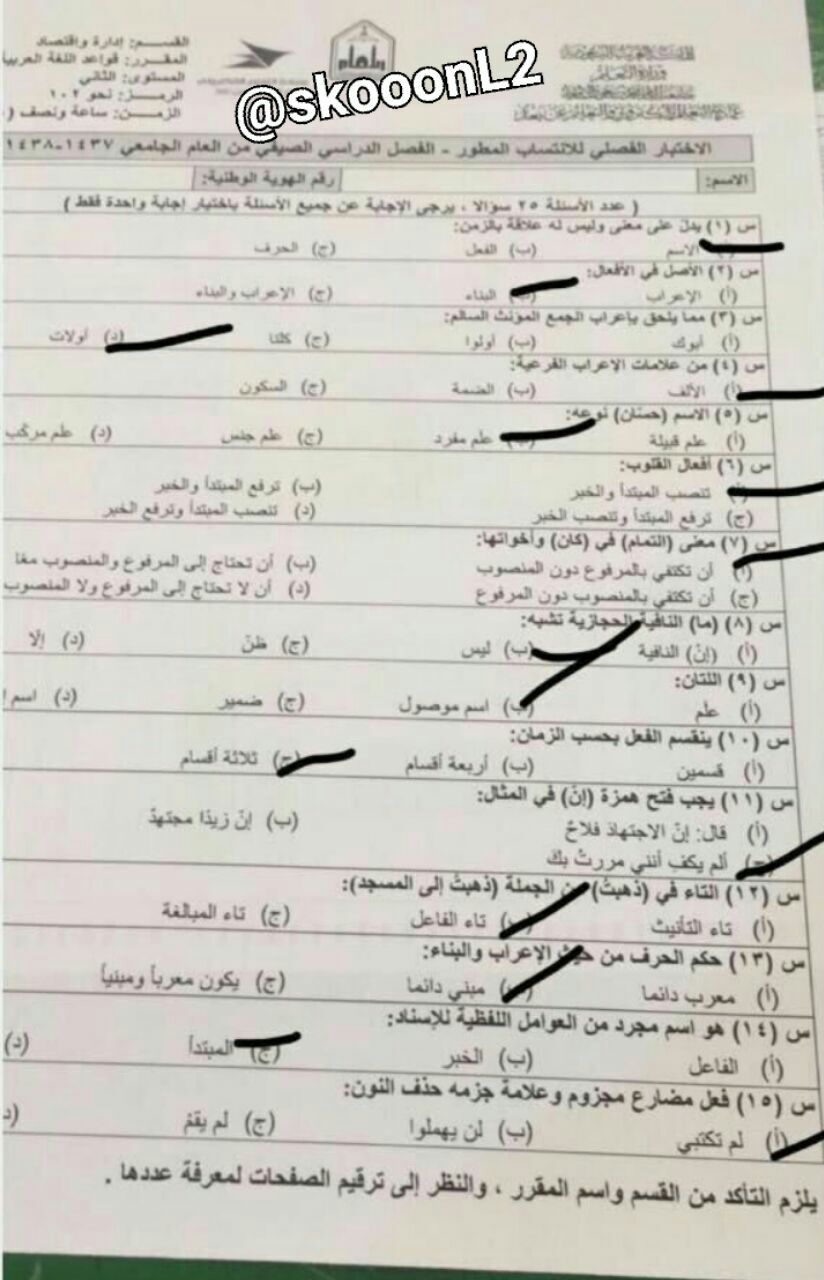 القسم: إدارة واقتصاد
المقرر: قواعد اللغة العربية
المستوى: الثاني
الرمز: نحو ١٠٢
الزمن: ساعة ونصف (
@skooonL2
الاختبار الفصلي للانتساب المطور - الفصل الدراسي الصيفي من العام الجامعي ١٤٣٧-١٤٣٨
الاسم: رقم الهوية الوطنية:
( عدد الأسئلة ٢٥ سؤالا ، يرجى الإجابة عن جميع الأسئلة باختيار إجابة واحدة فقط )
س (١) يدل على معنى وليس له علاقة بالزمن:
(أ) الاسم (ب) الفعل (ج) الحرف
س (٢) الأصل في الأفعال:
(أ) الإعراب (ب) البناء (ج) الإعراب والبناء
س (٣) مما يلحق بإعراب الجمع المؤنث السالم:
(أ) أبوك (ب) أولوا (ج) كلتا (د) أولات
س (٤) من علامات الإعراب الفرعية:
(أ) الألف (ب) الضمة (ج) السكون
س (٥) الاسم (حسّان) نوعه:
(أ) علم قبيلة (ب) علم مفرد (ج) علم جنس (د) علم مركب
س (٦) أفعال القلوب:
(أ) تنصب المبتدأ والخبر (ب) ترفع المبتدأ والخبر
(ج) ترفع المبتدأ وتنصب الخبر (د) تنصب المبتدأ وترفع الخبر
س (٧) معنى (التمام) في (كان) وأخواتها:
(أ) أن تكتفي بالمرفوع دون المنصوب (ب) أن تحتاج إلى المرفوع والمنصوب معًا
(ج) أن تكتفي بالمنصوب دون المرفوع (د) أن لا تحتاج إلى المرفوع ولا المنصوب
س (٨) (ما) النافية الحجازية تشبه:
(أ) (إنّ) النافية (ب) ليس (ج) ظنّ (د) إلّا
س (٩) اللتان:
(أ) علم (ب) اسم موصول (ج) ضمير (د) اسم
س (١٠) ينقسم الفعل بحسب الزمان:
(أ) قسمين (ب) أربعة أقسام (ج) ثلاثة أقسام
س (١١) يجب فتح همزة (إنّ) في المثال:
(أ) قال: إنّ الاجتهادَ فلاحٌ (ب) إنّ زيدًا مجتهدٌ
(ج) ألم يكفِ أنني مررتُ بكَ
س (١٢) التاء في (ذهبتُ) من الجملة (ذهبتُ إلى المسجد):
(أ) تاء التأنيث (ب) تاء الفاعل (ج) تاء المبالغة
س (١٣) حكم الحرف من حيث الإعراب والبناء:
(أ) معرب دائما (ب) مبني دائما (ج) يكون معرباً ومبنياً
س (١٤) هو اسم مجرد من العوامل اللفظية للإسناد:
(أ) الفاعل (ب) الخبر (ج) المبتدأ (د)
س (١٥) فعل مضارع مجزوم وعلامة جزمه حذف النون:
(أ) لم تكتبي (ب) لن يهملوا (ج) لم يقمْ (د
يلزم التأكد من القسم واسم المقرر ، والنظر إلى ترقيم الصفحات لمعرفة عددها .